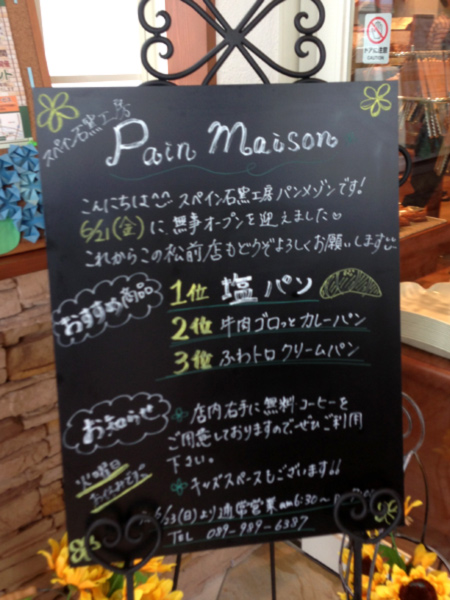 スペイン石黒工房
Pain Maison
こんにちは^^ スペイン石黒工房パンメゾンです!
6/21(金)に無事オープンを迎えました
これからこの松前店もどうぞよろしくお願いします
おすすめ商品
1位 塩パン
2位 牛肉ゴロッとカレーパン
3位 ふわトロクリームパン
お知らせ
店内右手に無料コーヒーを
ご用意しておりますので、ぜひご利用
下さい。
キッズスペースもございます!!
火曜日
6/23(日)より通常営業am6:30〜
TEL 089-989-6387
ドアに注意
CAUTION